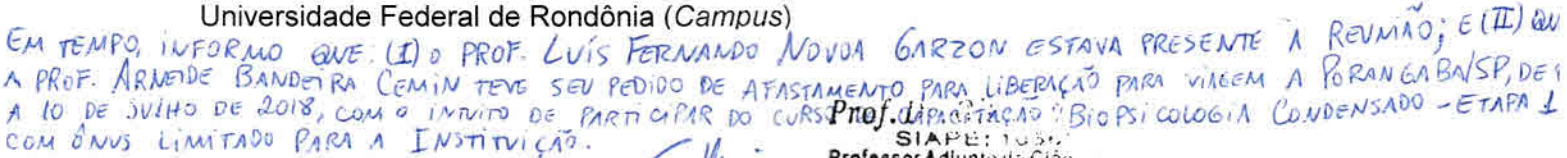 Universidade Federal de Rondônia (Campus)
EM TEMPO, INFORMO QUE: (I) O PROF. LUÍS FERNANDO NOVOA GARZON ESTAVA PRESENTE À REUNIÃO; E (II) QU
A PROF. ARNEIDE BANDEIRA CEMIN TEVE SEU PEDIDO DE AFASTAMENTO PARA LIBERAÇÃO PARA VIAGEM A PORANGABA/SP, DE
A 10 DE JULHO DE 2018, COM O INTUITO DE PARTICIPAR DO CURSO Prof. CAPACITAÇÃO "BIOPSICOLOGIA CONDENSADO - ETAPA 1
COM ÔNUS LIMITADO PARA A INSTITUIÇÃO.
SIAPE:
Professor Adjunto